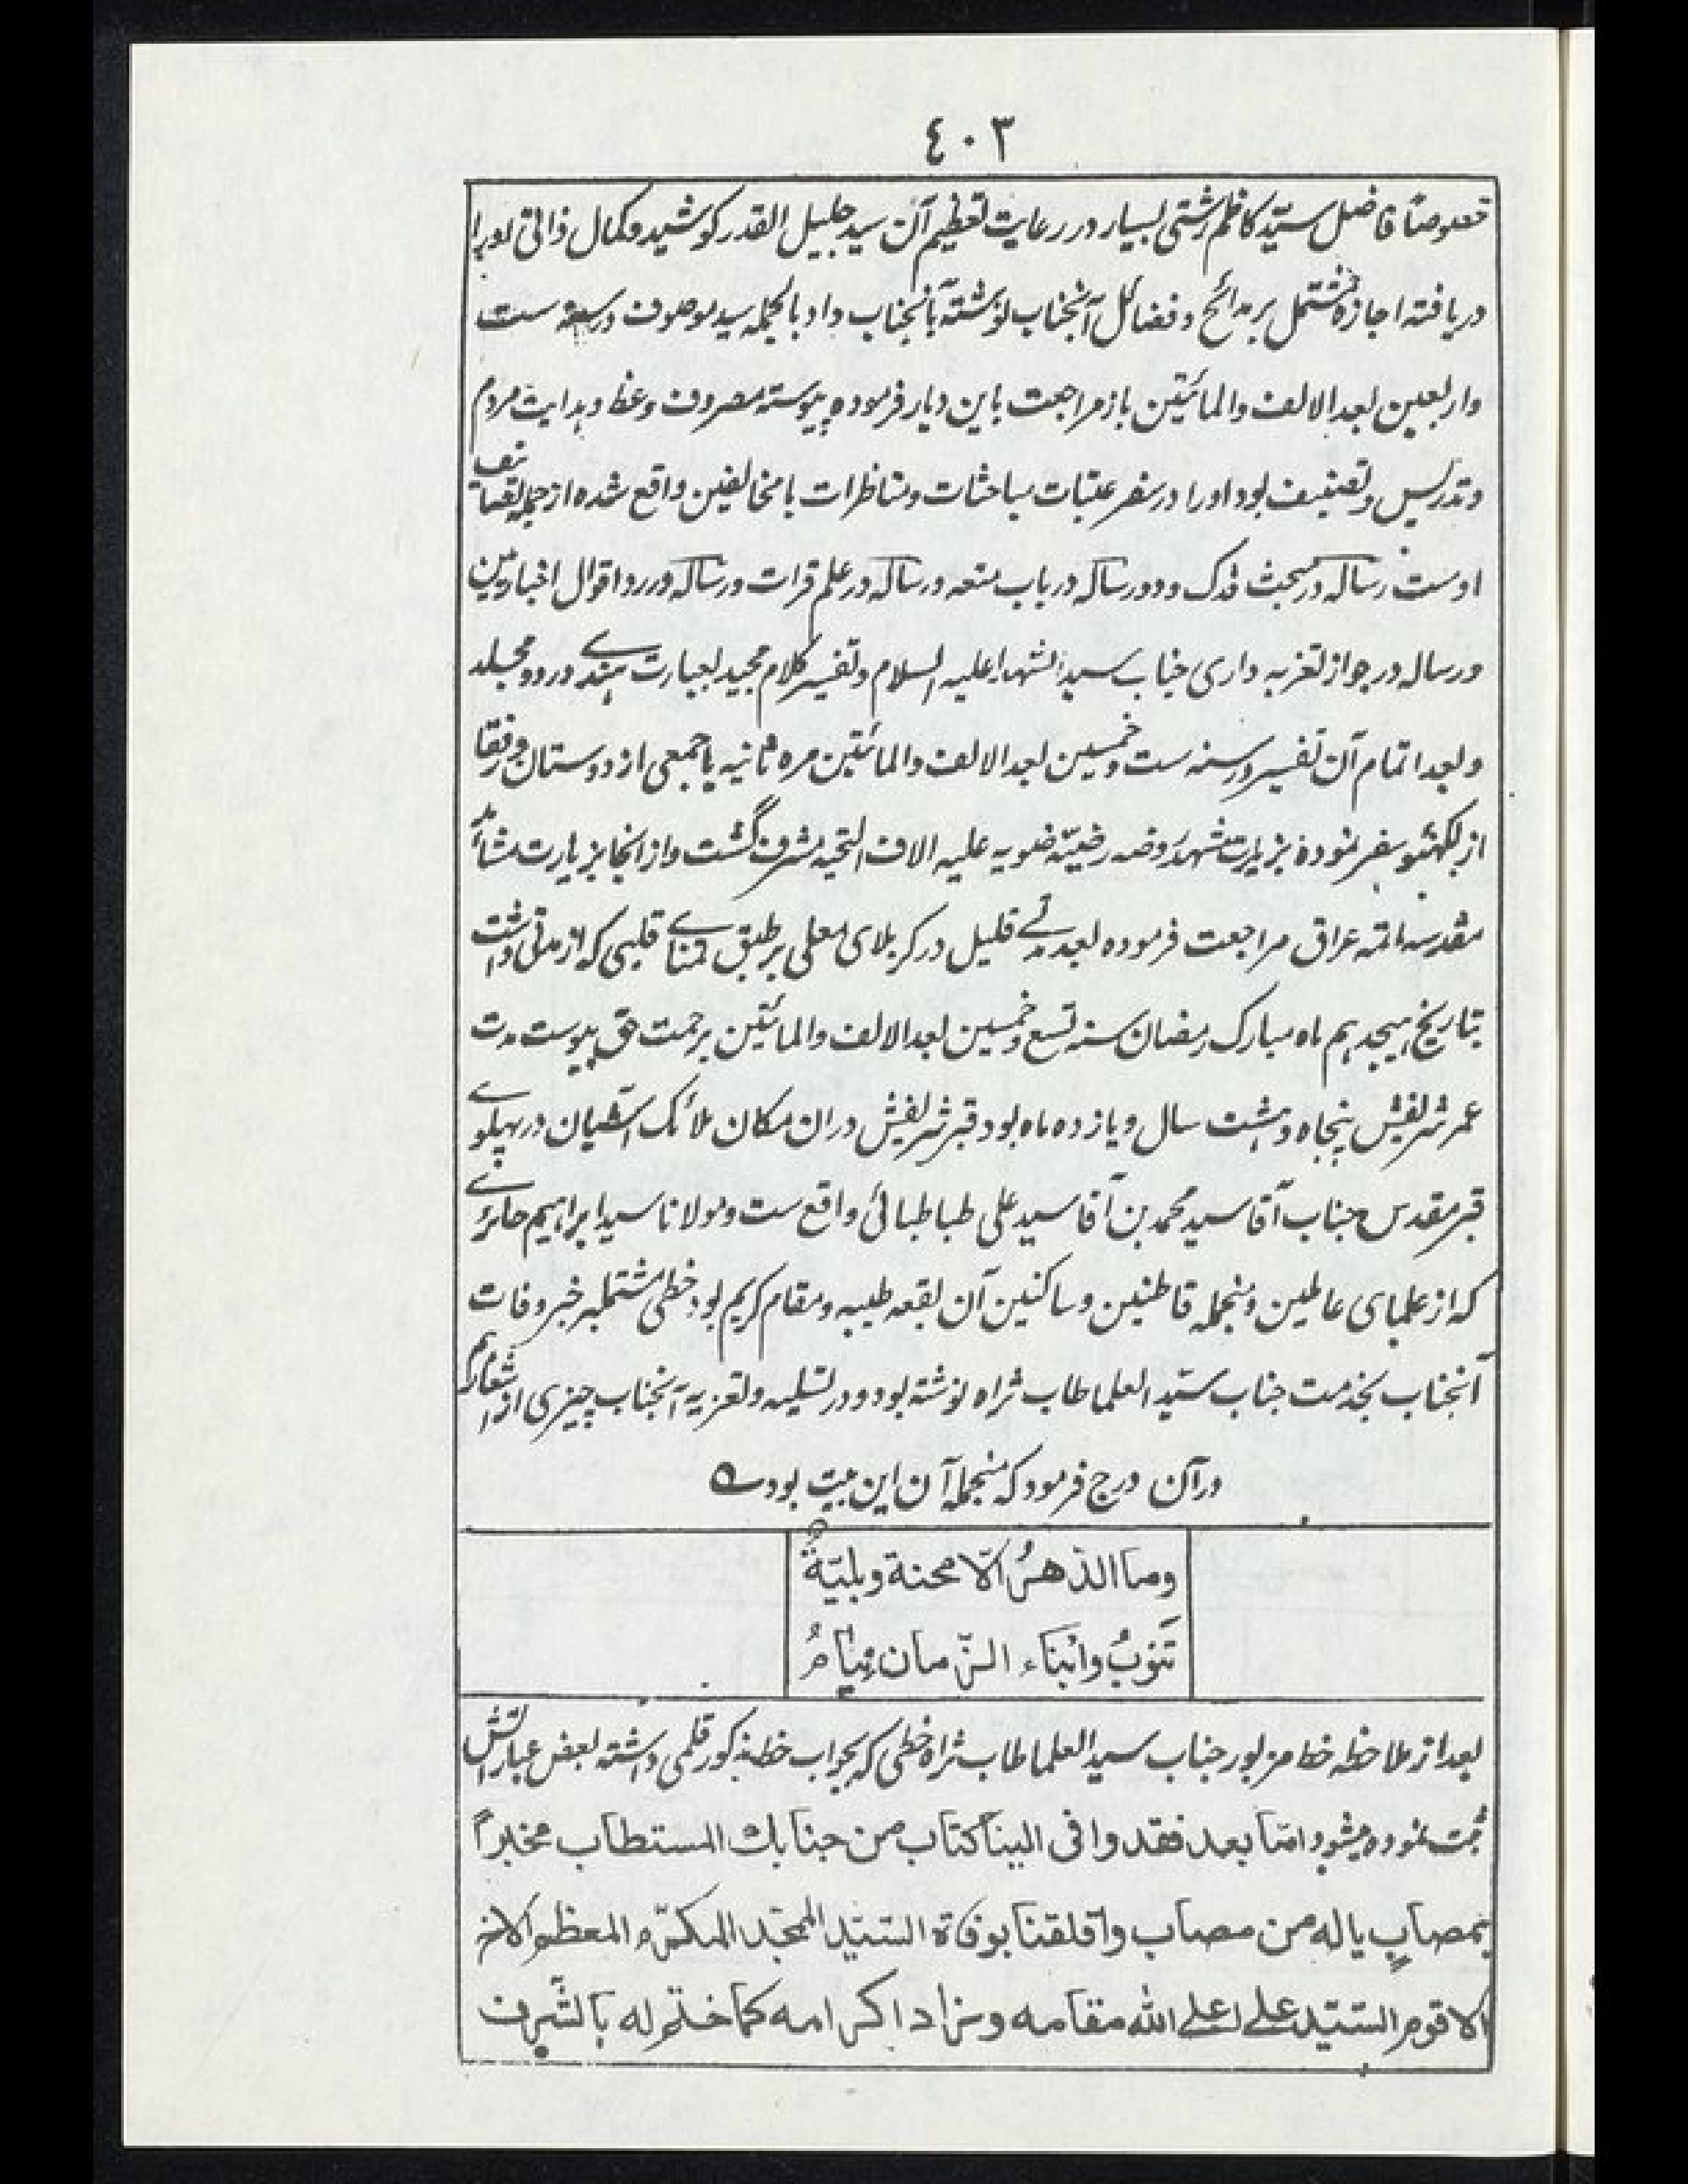 ٤٠٣
خصوصًا فاضل سیّد کاظم رشتی بسیار در رعایت تعظیم آن سید جلیل القدر کوشید و کمال ذاتی او را
دریافته اجازهٔ مشتمل بر مدائح و فضائل آنجناب نوشته بآنجناب داد بالجمله سید موصوف در سنه ست
واربعین بعد الالف والمائتین باز مراجعت باین دیار فرموده پیوسته مصروف وعظ و هدایت مردم
و تدریس و تصنیف بود او را در سفر عتبات مباحثات و مناظرات با مخالفین واقع شده از جمله تصانیف
اوست رساله در مبحث فدک و دو رساله در باب متعه و رساله در علم قرات و رساله در رد اقوال اخباریین
و رساله در جواز تعزیه داری جناب سید الشهدا علیه السلام و تفسیر کلام مجید بعبارت هندے در دو مجلد
و بعد اتمام آن تفسیر در سنه ست و خمسین بعد الالف والمائتین مره ثانیه با جمعی از دوستان و رفقا
از لکهنئو سفر نموده بزیارت مشهد روضه رضیّه رضویه علیه الاف التحیه مشرف گشت و از انجا بزیارت مشاهد
مقدسه ائمه عراق مراجعت فرموده بعد مدتے قلیل در کربلای معلی بر طبق تمناے قلبی که از مدتی داشت
بتاریخ هیجدهم ماه مبارک رمضان سنه تسع و خمسین بعد الالف والمائتین برحمت حق پیوست مدت
عمر شریفش پنجاه و هشت سال و یازده ماه بود قبر شریفش دران مکان ملائک آشیان در پهلوے
قبر مقدس جناب آقا سید محمد بن آقا سید علی طباطبائی واقع ست و مولانا سید ابراهیم حائرے
که از علمای عاملین و منجمله قاطنین و ساکنین آن بقعه طیبه و مقام کریم بود خطی مشتمل بر خبر وفات
آنجناب بخدمت جناب سیّد العلما طاب ثراه نوشته بود و در تسلیه و تعزیه آنجناب چیزی از اشعار هم
در آن درج فرمود که منجمله آن این بیت بود ؎
وما الدّهرُ الّا محنة وبليّةٌ
تَنوبُ وابْنَاء الزّمان نِيَامُ
بعد از ملاحظه خط مزبور جناب سید العلما طاب ثراه خطی که بجواب خط مذکور قلمی داشته بعض عباراتش
ثبت نموده میشود امّا بعد فقد وافى الينا كتاب من جنابك المستطاب مخبراً
بمصابٍ ياله من مصاب واقلقنا بوفاة السيّد الممجّد المكرّم المعظم الاخ
الاقوم السيّد علي اعلى الله مقامه وزاد اكرامه كما ختم له بالشّرف